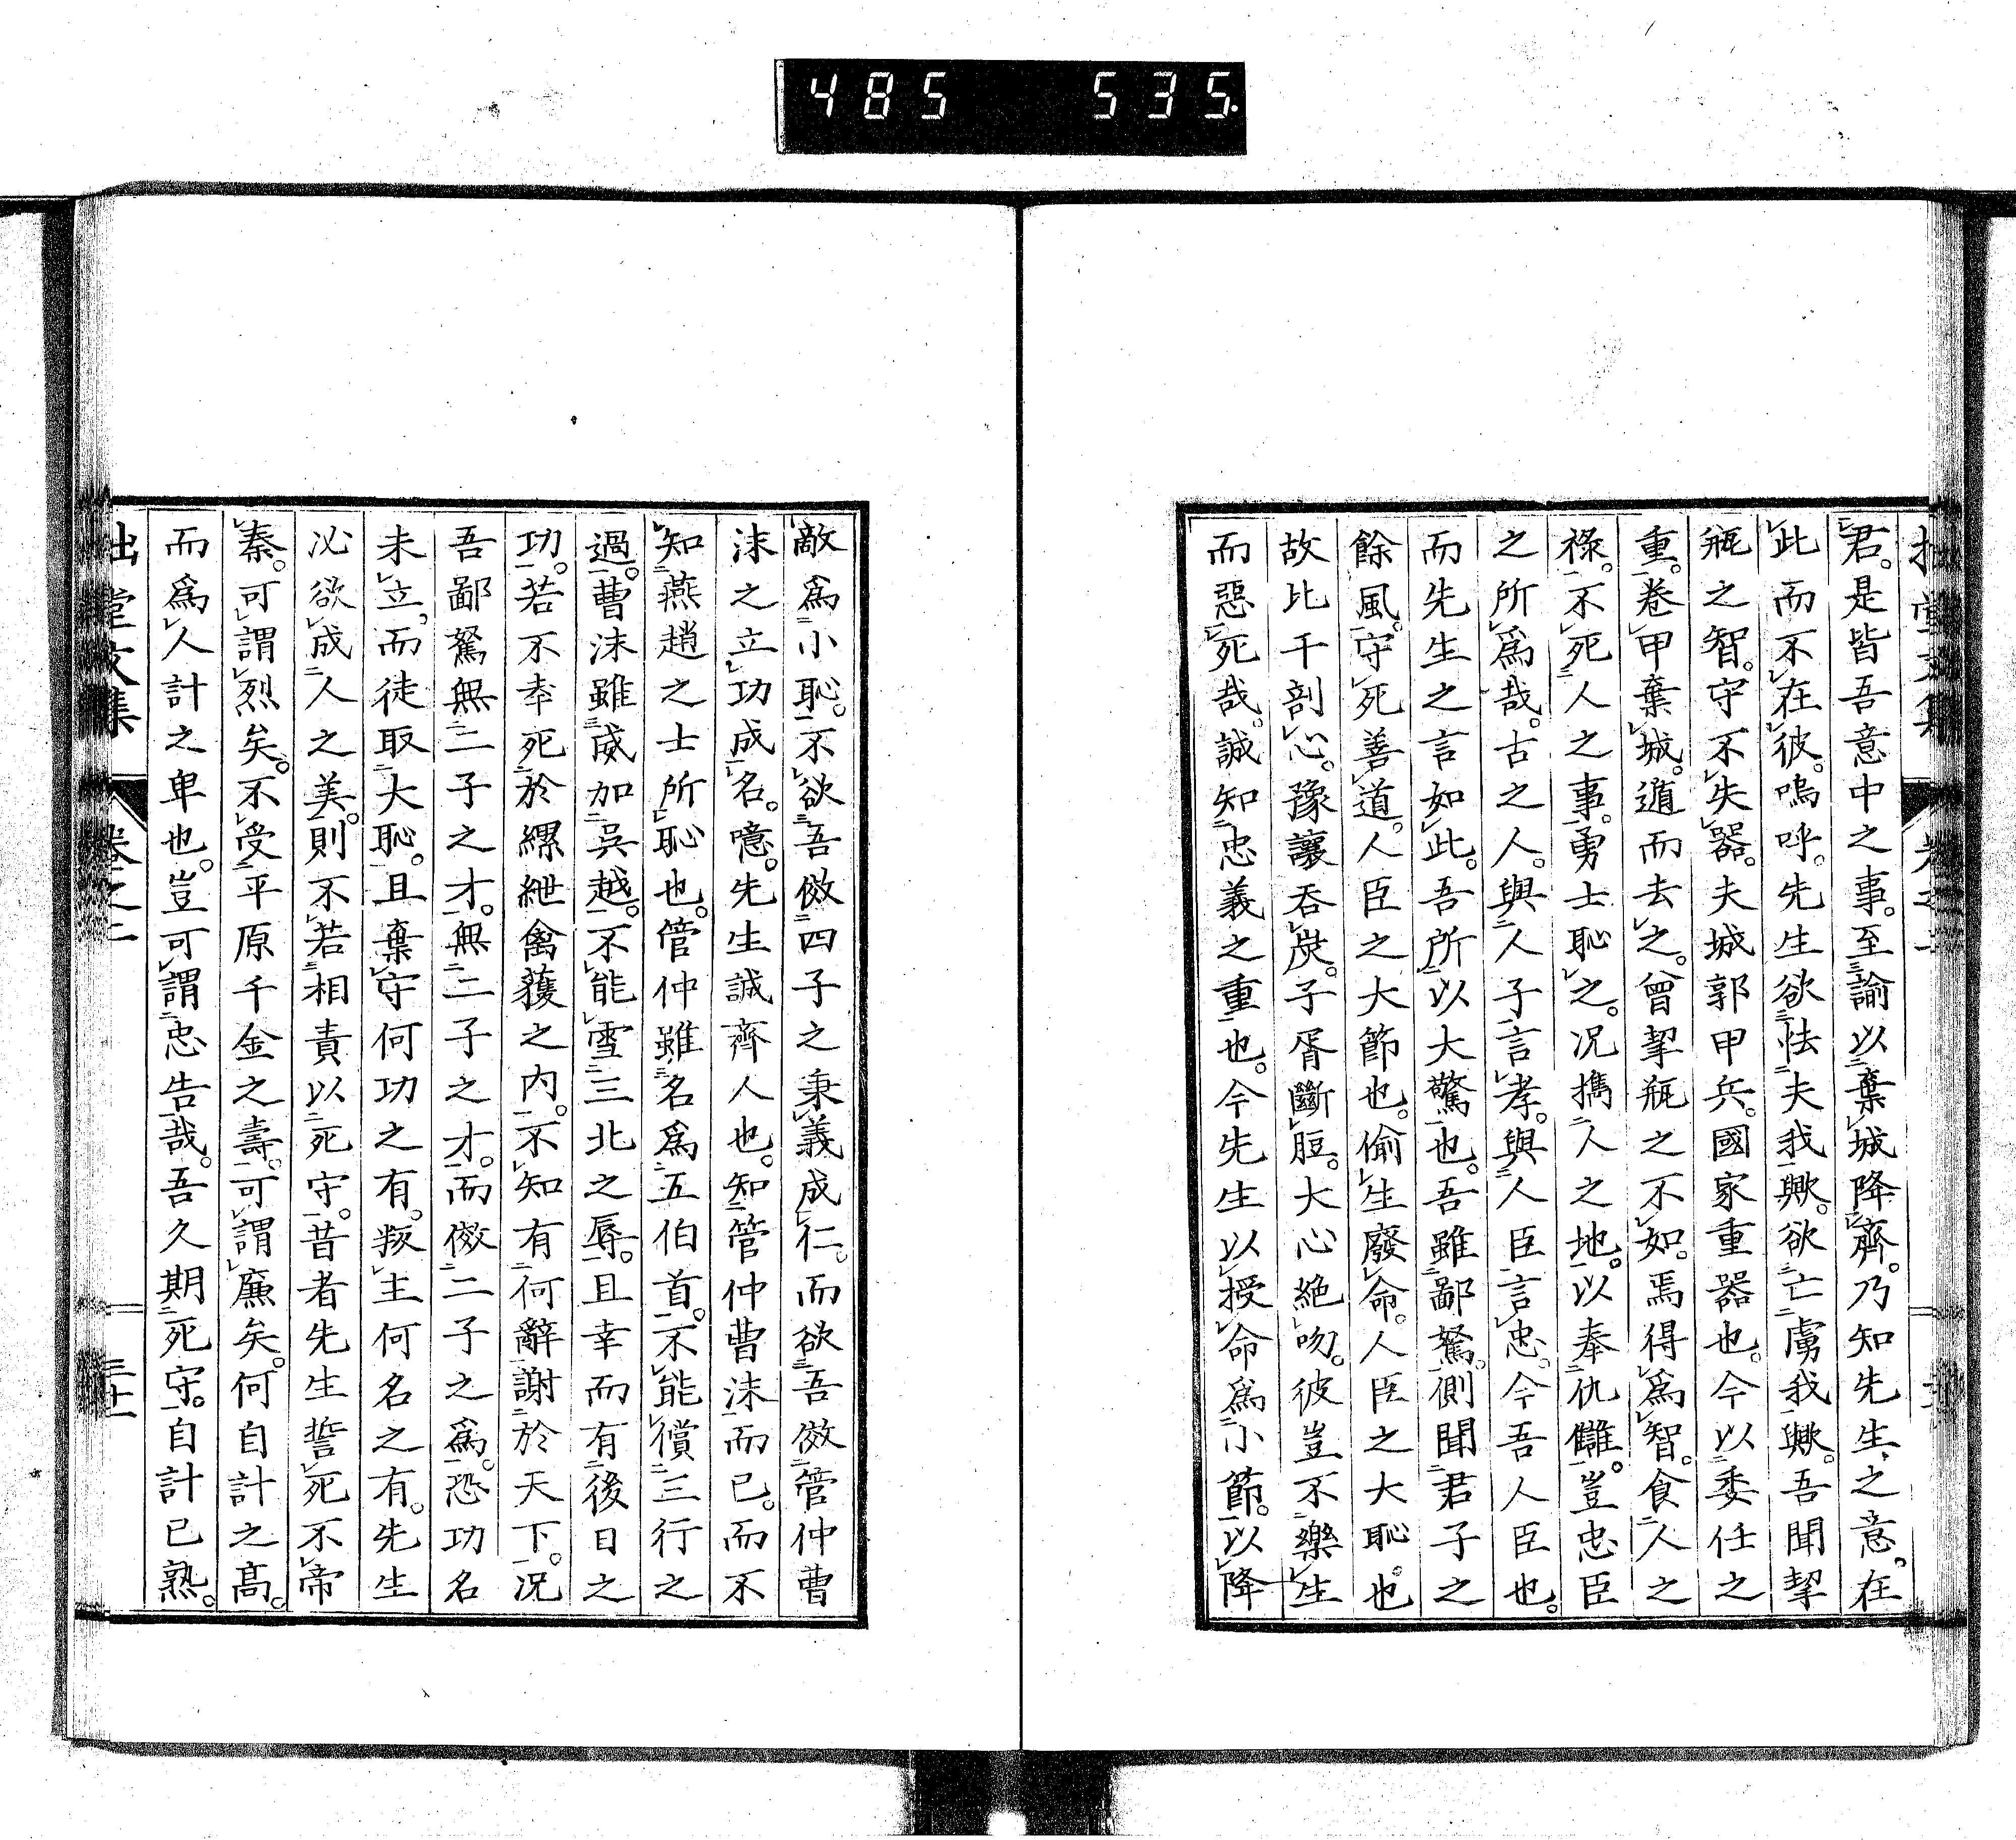 485 535.
君。是皆吾意中之事。至諭以棄城降齊。乃知先生之意。在
此而不在彼。嗚呼。先生欲怯夫我歟。欲亡虜我歟。吾聞挈
瓶之智。守不失器。夫城郭甲兵。國家重器也。今以委任之
重。卷甲棄城。遁而去之。曾挈瓶之不如。焉得爲智。食人之
祿。不死人之事。勇士恥之。况擕人之地。以奉仇讎。豈忠臣
之所爲哉。古之人。與人子言孝。與人臣言忠。今吾人臣也。
而先生之言如此。吾所以大驚也。吾雖鄙駑。側聞君子之
餘風。守死善道。人臣之大節也。偷生廢命。人臣之大恥也
故比干剖心。豫讓吞炭。子胥斷脰。大心絕吻。彼豈不樂生
而惡死哉。誠知忠義之重也。今先生以授命爲小節。以降
敵爲小恥。不欲吾傚四子之秉義成仁。而欲吾傚管仲曹
沫之立功成名。噫。先生誠齊人也。知管仲曹沫而已。而不
知燕趙之士所恥也。管仲雖名爲五伯首。不能償三行之
過。曹沫雖威加吳越。不能雪三北之辱。且幸而有後日之
功。若不幸死於縲紲禽獲之內。不知有何辭謝於天下。况
吾鄙駑無二子之才。無二子之才。而傚二子之爲。恐功名
未立。而徒取大恥。且棄守何功之有。叛主何名之有。先生
必欲成人之美。則不若相責以死守。昔者先生誓死不帝
秦。可謂烈矣。不受平原千金之壽。可謂廉矣。何自計之高。
而爲人計之卑也。豈可謂忠告哉。吾久期死守。自計已熟。
拙堂文集 卷之二 三十二